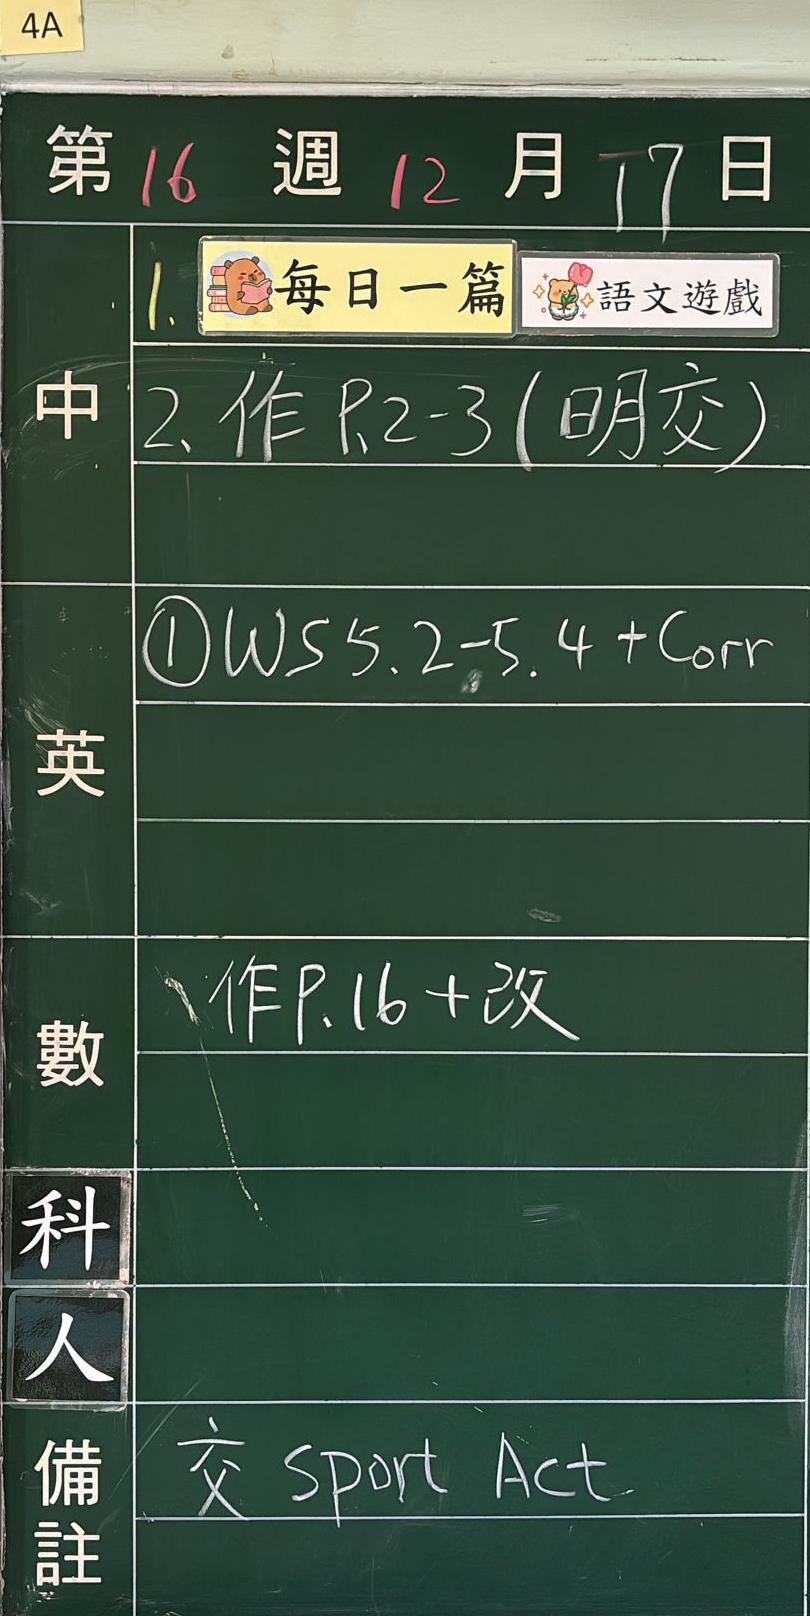 4A
第 16 週 12 月 17 日
中
1. 每日一篇 語文遊戲
2. 作 P.2-3 (明交)
英
① WS 5.2-5.4 + Corr
數
作 P.16 + 改
科
人
備註
交 Sport Act